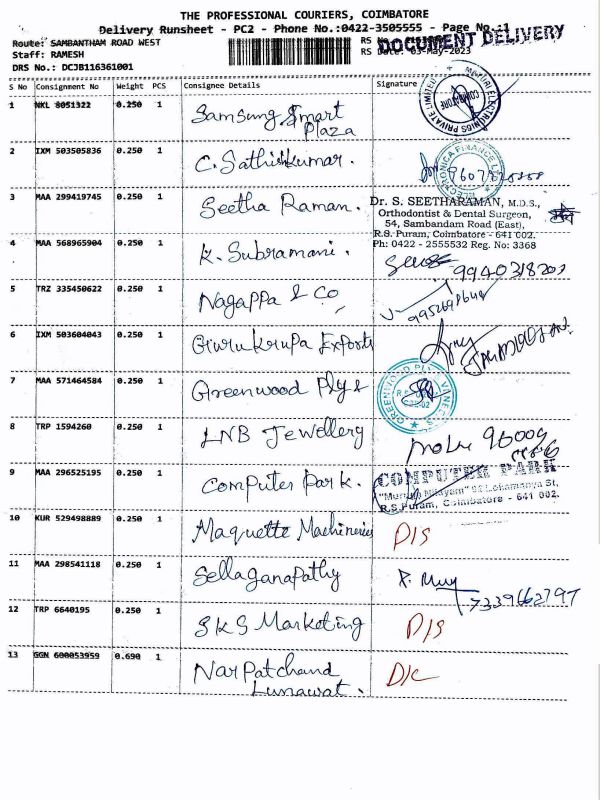 THE PROFESSIONAL COURIERS, COIMBATORE
Delivery Runsheet - PC2 - Phone No.:0422-3505555 - Page No.:1
DOCUMENT DELIVERY
Route: SAMBANTHAM ROAD WEST
RS No
Staff: RAMESH
RS Date: 03-May-2023
DRS No.: DCJB116361001
S No Consignment No Weight PCS Consignee Details Signature
MATURI ELECTRONICS PRIVATE LIMITED
COIMBATORE
1 NKL 8051322 0.250 1 Samsung Smart
Plaza
2 IXM 503505836 0.250 1 C. Sathishkumar.
ELECTRONICA FINANCE
3 MAA 299419745 0.250 1 Seetha Raman.
Dr. S. SEETHARAMAN, M.D.S.,
Orthodontist & Dental Surgeon,
54, Sambandam Road (East),
R.S. Puram, Coimbatore - 641 002.
Ph: 0422 - 2555532 Reg. No: 3368
4 MAA 568965904 0.250 1 K. Subramani.
9940318203
5 TRZ 335450622 0.250 1 Nagappa & Co
6 IXM 503604043 0.250 1 Guru Krupa Exports
7 MAA 571464584 0.250 1 Greenwood Ply &
8 TRP 1594260 0.250 1 LNB Jewellery
9 MAA 296525195 0.250 1 Computer Park.
COMPUTER PARK
"Murugu Nilayam" 92 Lokamanya St,
R.S.Puram, Coimbatore - 641 002.
10 KUR 529498889 0.250 1 Maquette Machineries D/S
11 MAA 298541118 0.250 1 Sellaganapathy
7339662797
12 TRP 6640195 0.250 1 SKS Marketing D/S
13 GGN 600053959 0.690 1 Narpatchand D/C
Lunawat.